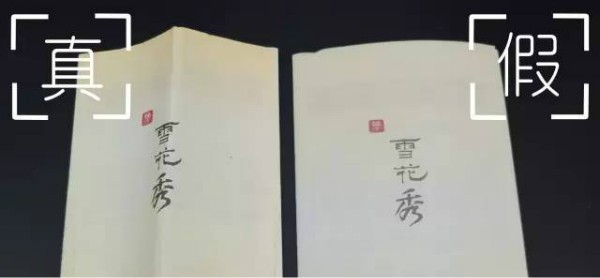 真
雪花秀
假
雪花秀